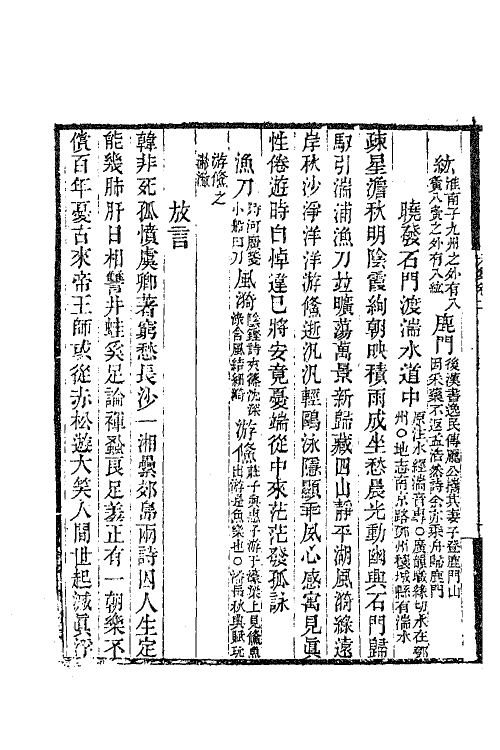 紘 淮南子九州之外有八寅八寅之外有八紘 鹿門 後漢書逸民傳龐公攜其妻子登鹿門山因采藥不返孟浩然詩余亦乘舟歸鹿門
曉發石門渡湍水道中 原注水經湍音專○廣韻職緣切水在鄧州○地志南京路鄧州穰城縣有湍水
疎星澹秋明陰霞絢朝映積雨成坐愁晨光動幽興石門歸
馭引湍浦漁刀竝曠蕩萬景新歸藏四山靜平湖風漪綠遠
岸秋沙淨洋洋游鯈逝汎汎輕鷗泳隱顯乖夙心感寓見眞
性倦遊時自悼違已將安竟憂端從中來茫茫發孤詠
漁刀 詩河廣箋小船曰刀 風漪 陰鏗詩夾篠沈深淥含風結細漪 游鯈 莊子與惠子游于濠梁上見鯈魚出游是魚樂也○潘岳秋興賦玩
游鯈之潎潎
放言
韓非死孤憤虞卿著窮愁長沙一湘纍郊島兩詩囚人生定
能幾肺肝日相讐井蛙奚足論褌蝨良足羞正有一朝樂不
償百年憂古來帝王師或從赤松遊大笑人間世起滅眞浮